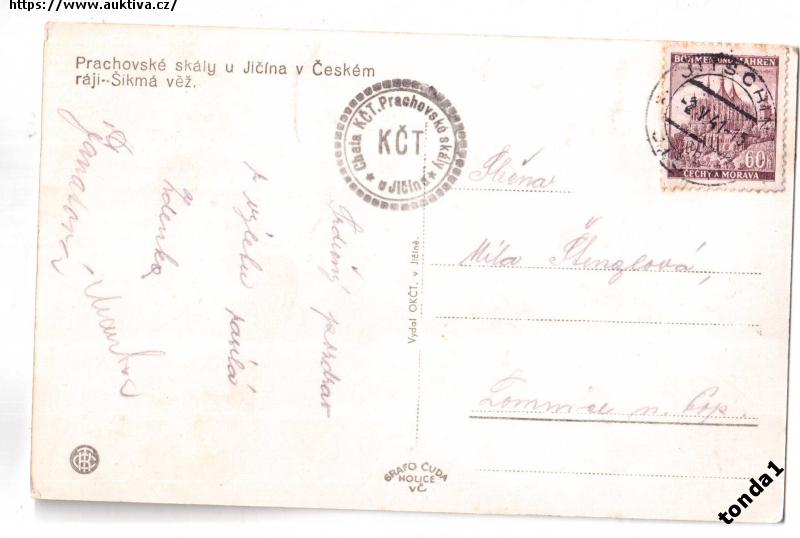 https://www.auktiva.cz/
Prachovské skály u Jičína v Českém
ráji--Šikmá věž.
Chata KČT. Prachovské skály
KČT
u Jičína
BÖHMEN UND MÄHREN
JITSCHIN
60h
ČECHY A MORAVA
Srdečný pozdrav
z výletu zasílá
Zdenka
Slečna
Míla Štenglová,
Lomnice n. Pop.
Vydal OKČT. v Jičíně.
GRAFO ČUDA
HOLICE
VČ
tonda1